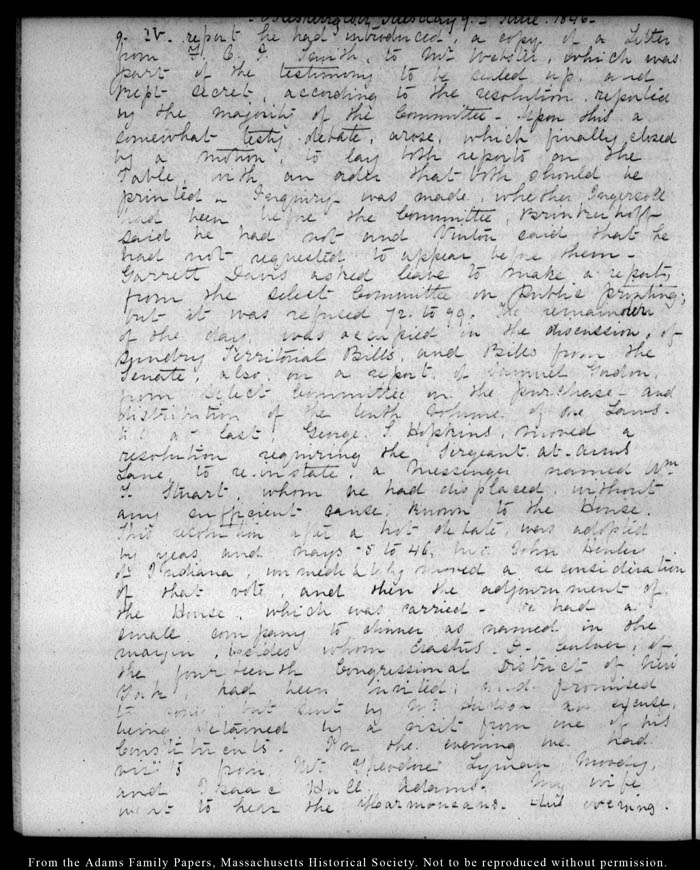 Washington Tuesday 9. June. 1846.
9. IV. report he had introduced, a copy of a Letter
from F. O. J. Smith, to Mr Webster, which was
part of the testimony to be sealed up, and
kept secret, according to the resolution reported
by the majority of the Committee. Upon this a
somewhat testy debate, arose, which finally closed
by a motion, to lay both reports on the
Table, with an order that both should be
printed. Inquiry was made, whether Ingersoll
had been before the Committee, Brinkerhoff
said he had not and Vinton said that he
had not requested to appear before them.
Garrett Davis asked leave to make a report,
from the select Committee on public printing;
but it was refused 72. to 99. The remainder
of the day, was occupied in the discussion, of
sundry Territorial Bills, and Bills from the
Senate, also, on a report, of Samuel Gordon,
from select Committee on the purchase and
distribution of the tenth volume of the Laws.
at last, George. Hopkins, moved a
resolution requiring the Sergeant at arms
Lane to re-instate, a messenger named Wm
Stuart, whom he had displaced without
any sufficient cause, known to the House.
This resolution after a hot debate, was adopted
by yeas, and nays to 46, John Henley
of Indiana, immediately moved a reconsideration
of that vote, and then the adjournment of
the House, which was carried. We had a
small company to dinner as named in the
margin, besides whom Erastus D. Culver, of
the fourteenth Congressional District of New
York, had been invited, and promised
to come; but sent by Mr Hudson an excuse,
being detained by a visit from one of his
Constituents. In the evening we had
visits from Mr Theodore Lyman Moody,
and Isaac Hull Adams. My wife
went to hear the Harmoneans this evening.
From the Adams Family Papers, Massachusetts Historical Society. Not to be reproduced without permission.